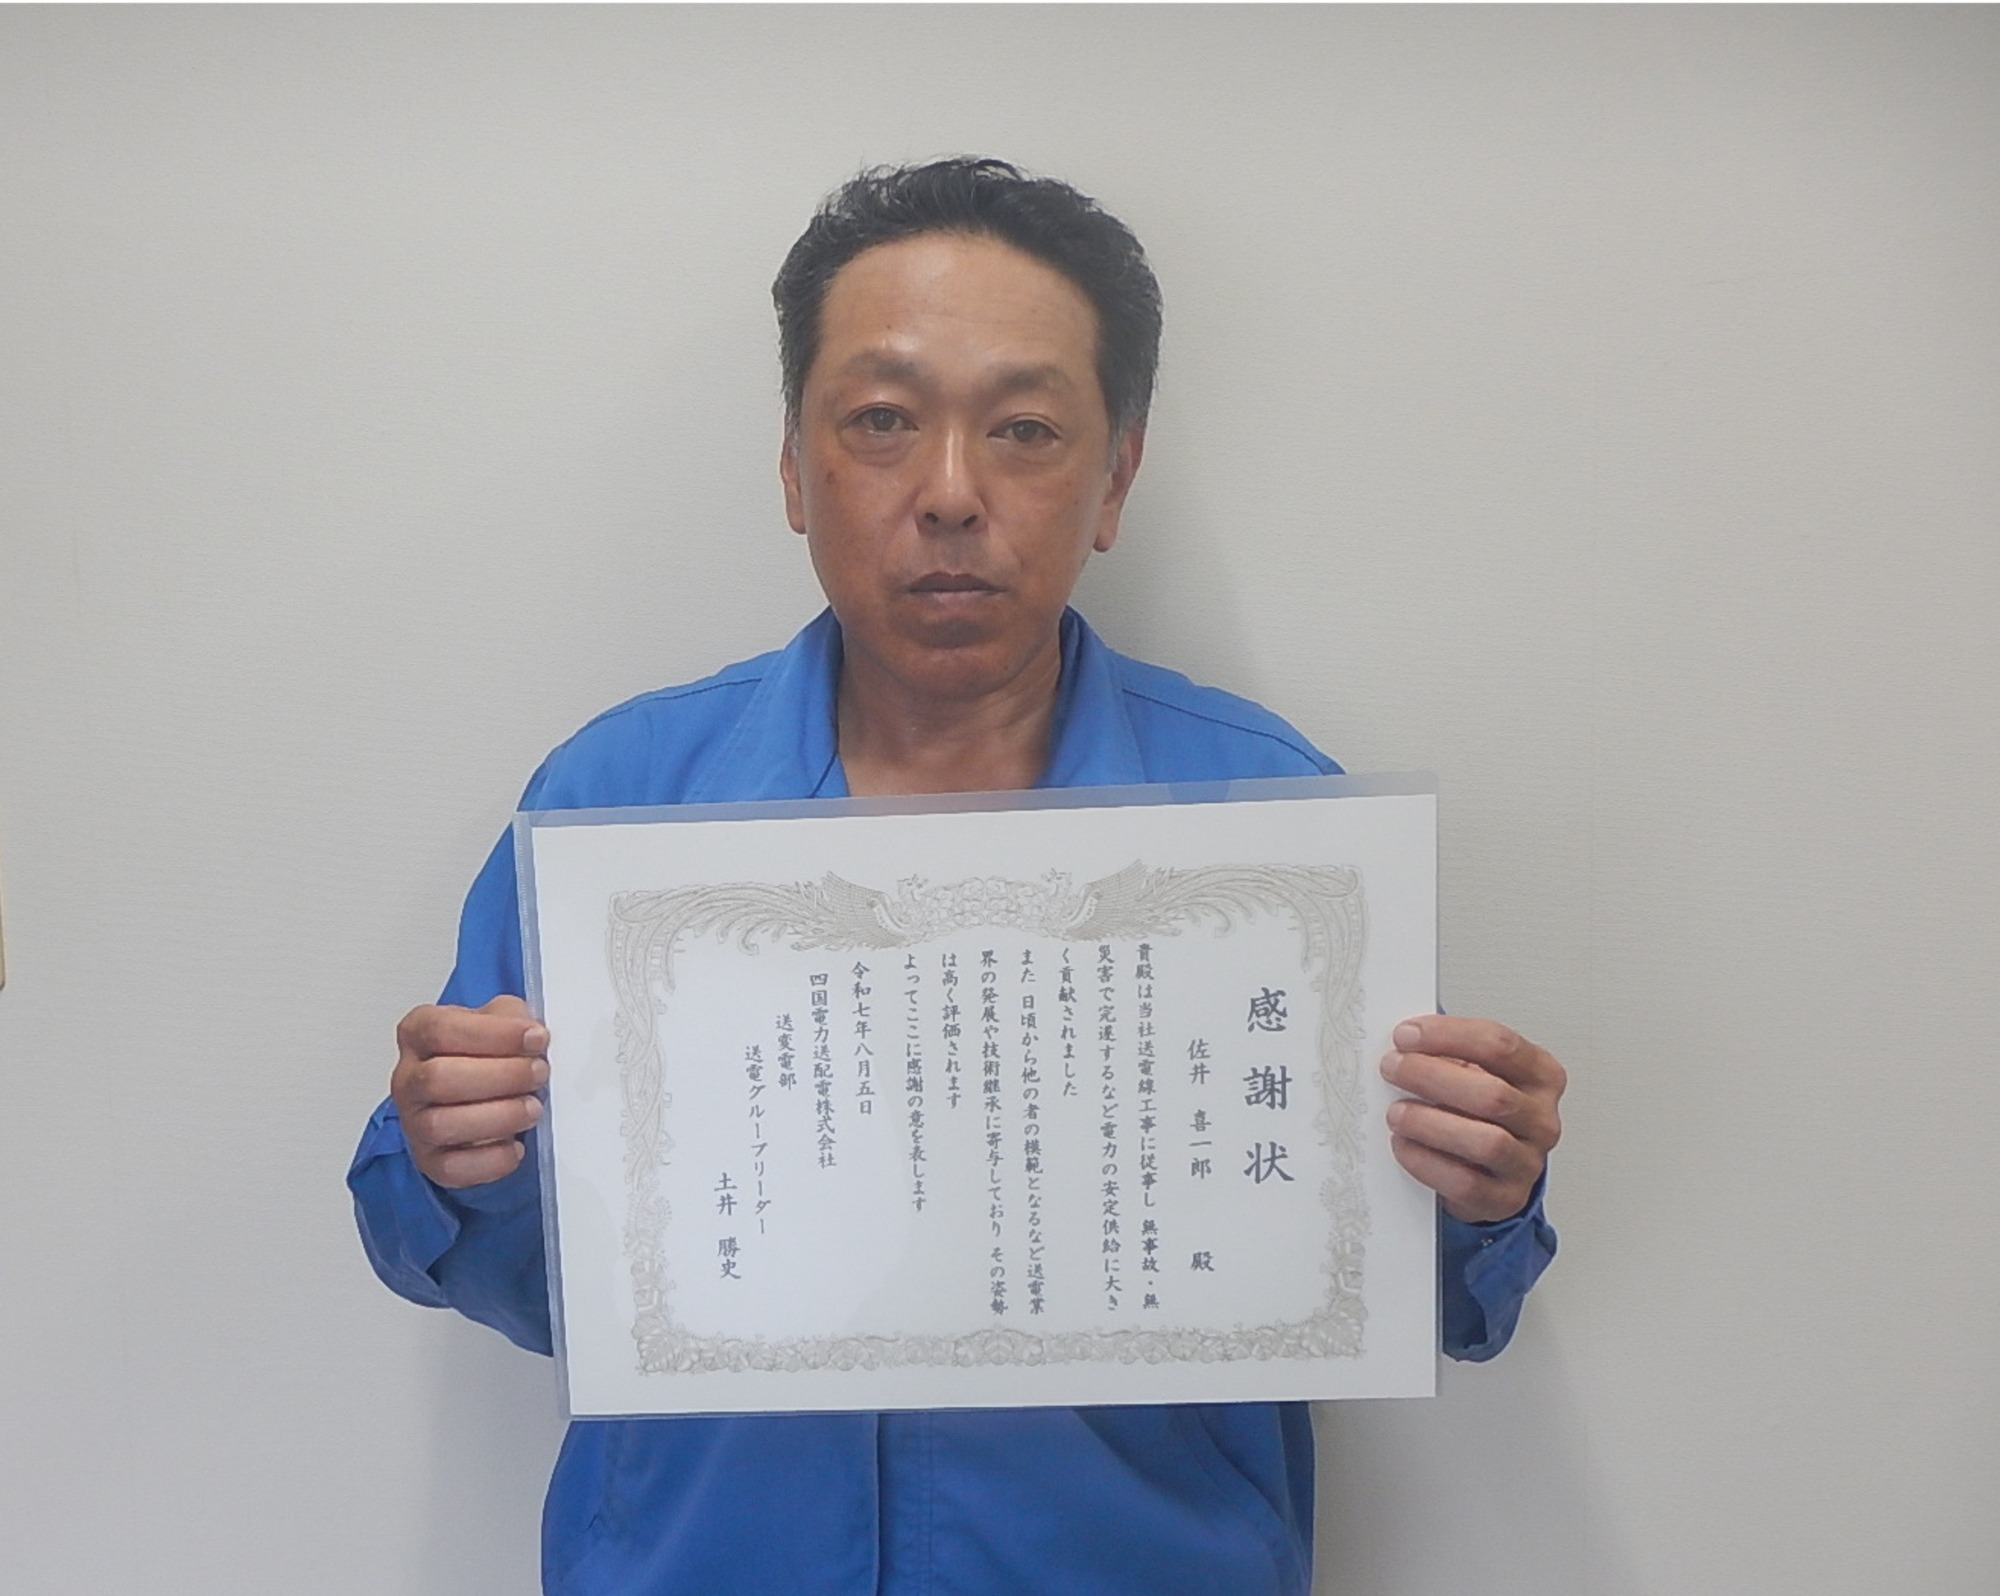 感謝状
佐井 喜一郎 殿
貴殿は当社送電線工事に従事し 無事故・無
災害で完遂するなど電力の安定供給に大き
く貢献されました
また 日頃から他の者の模範となるなど送電業
界の発展や技術継承に寄与しており その姿勢
は高く評価されます
よってここに感謝の意を表します
令和七年八月五日
四国電力送配電株式会社
送変電部
送電グループリーダー
土井 勝史